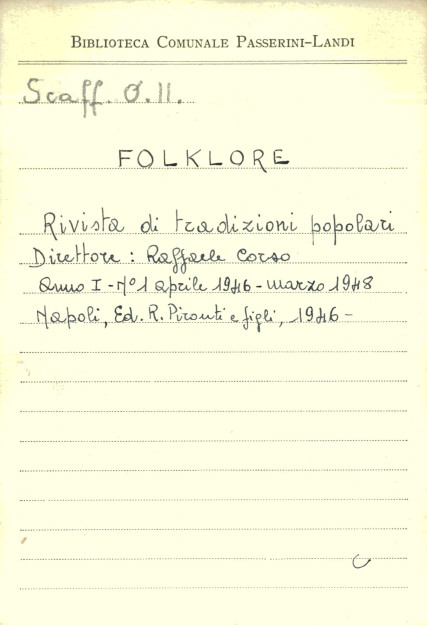 BIBLIOTECA COMUNALE PASSERINI-LANDI
Scaff. O.II.
FOLKLORE
Rivista di tradizioni popolari
Direttore : Raffaele Corso
Anno I - Nº 1 aprile 1946 - marzo 1948
Napoli, Ed. R. Pironti e figli, 1946 -